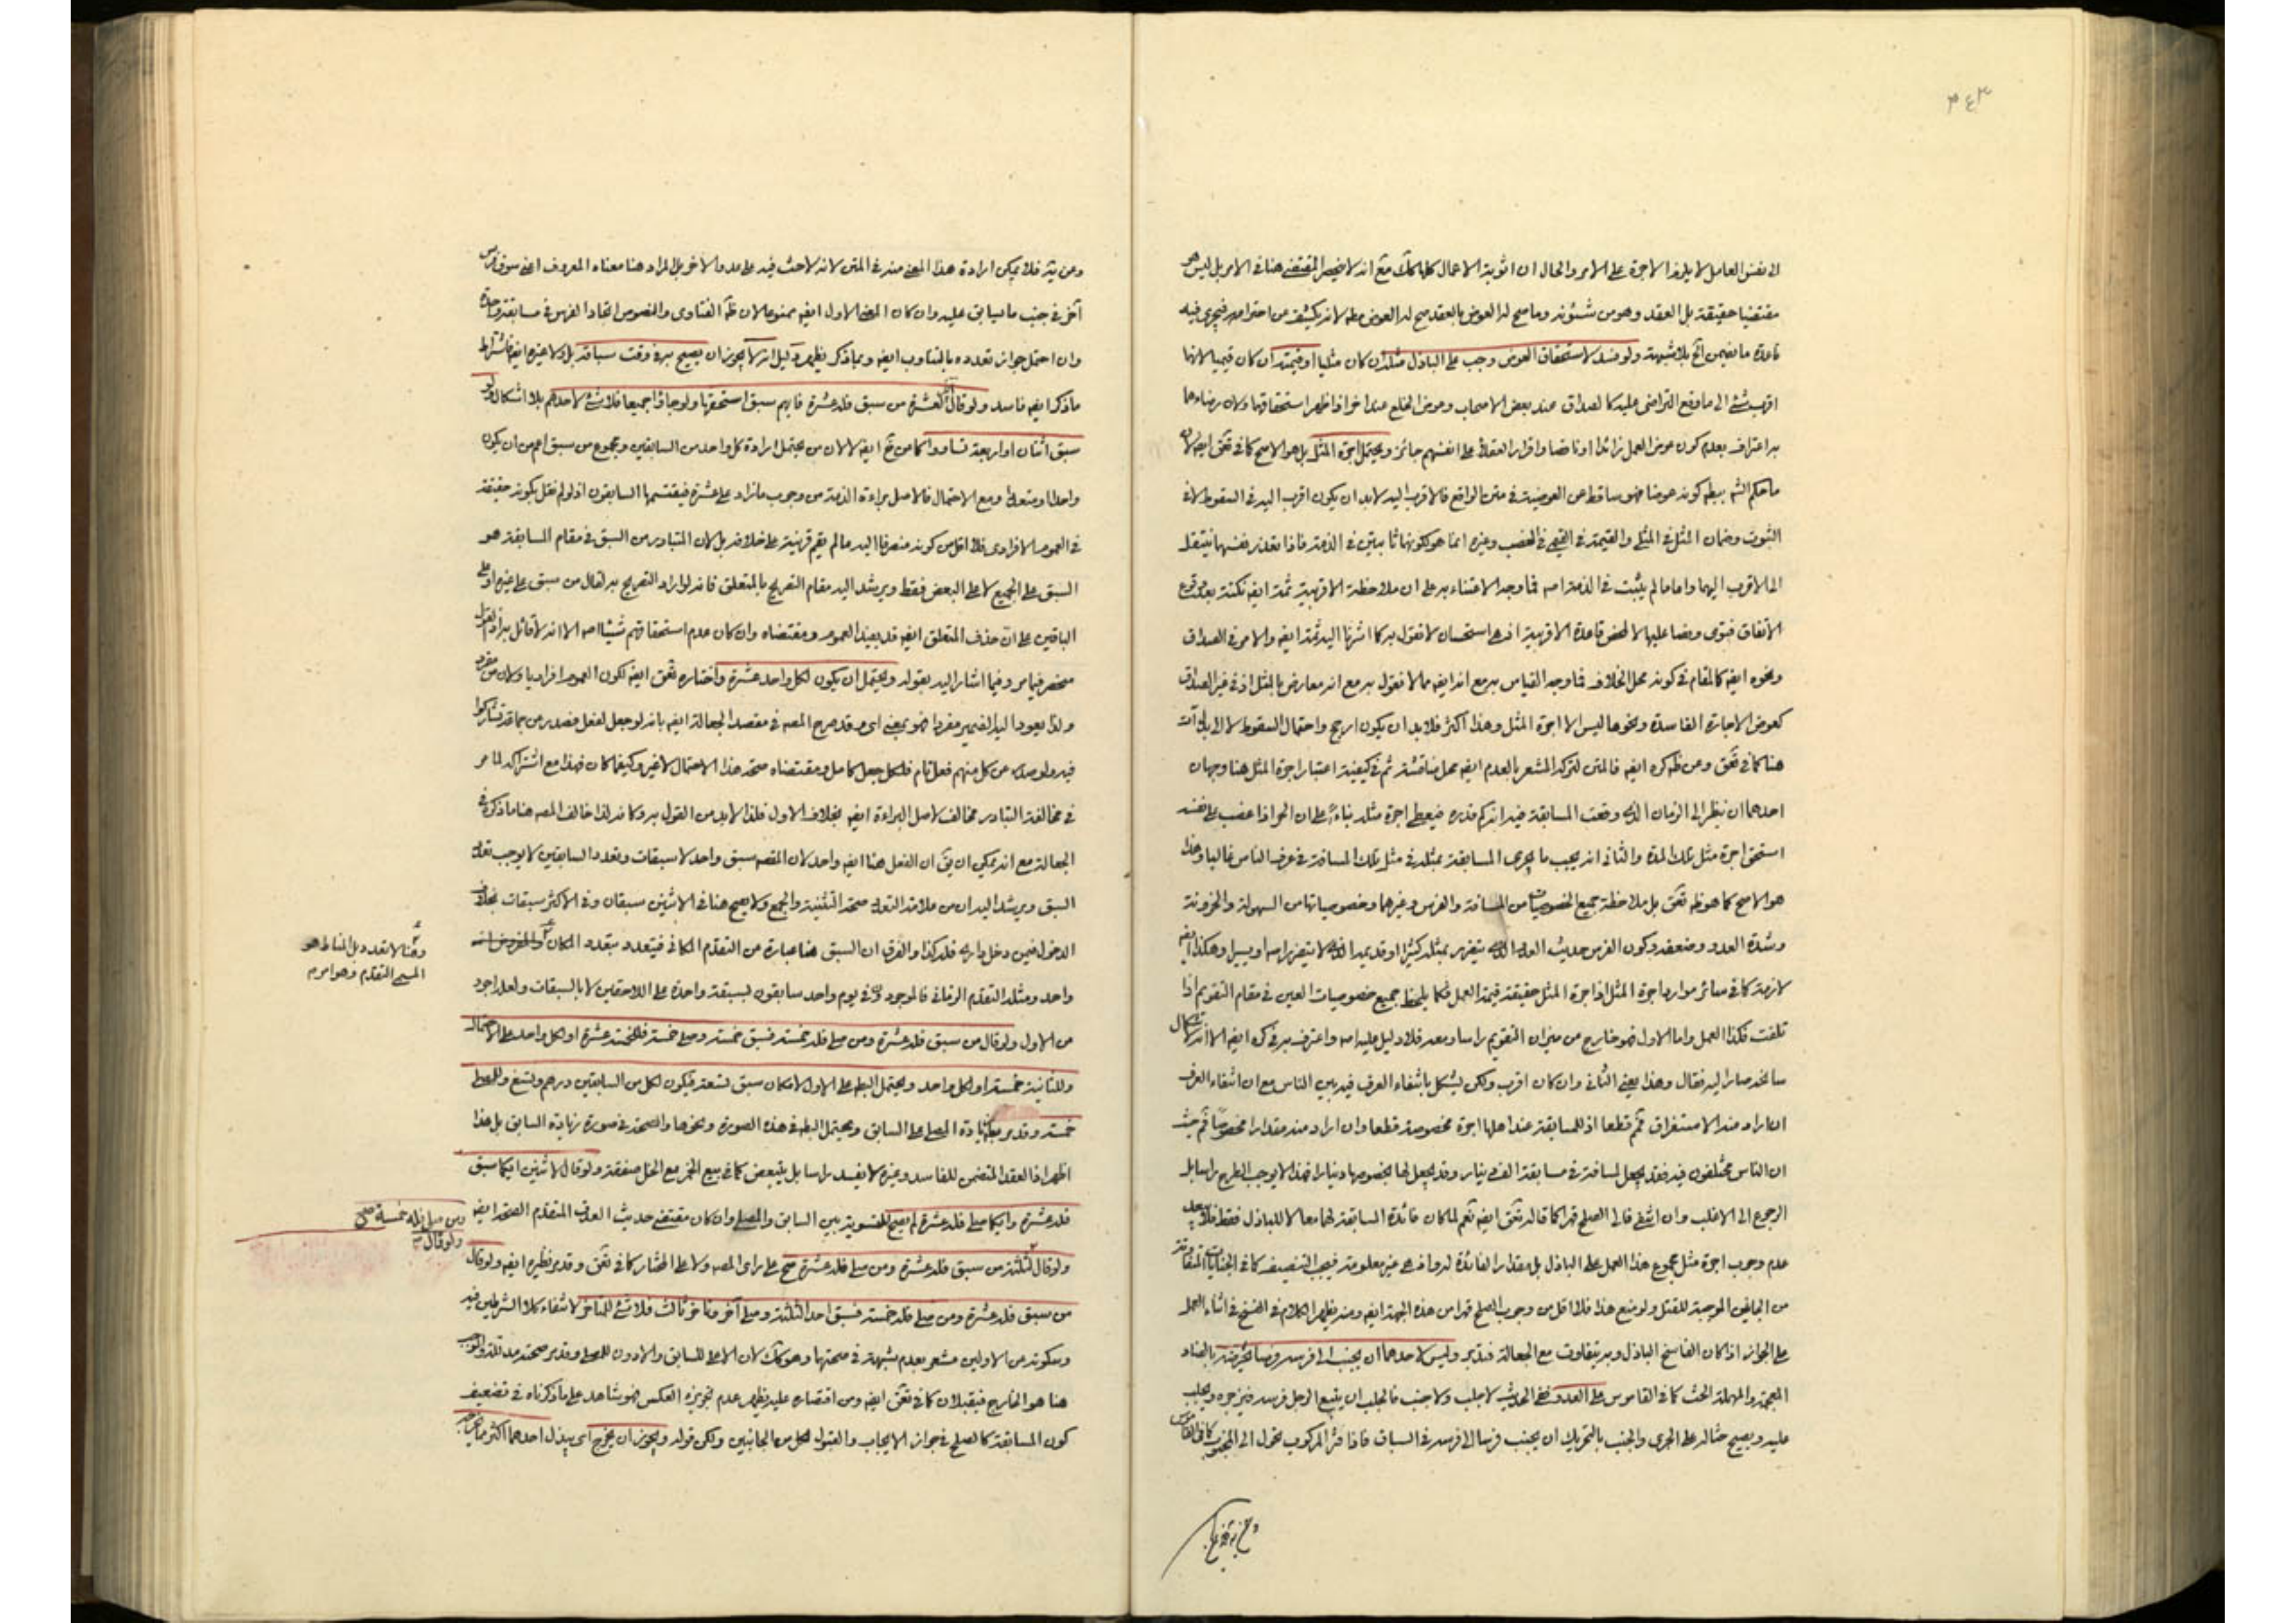 ٣٤٣
الى نفس العامل لا يلزم الاجرة على الامر والحال ان اثوبة الاعمال كلها كك مع انه لا ينحصر المقتضى هنا في الامر بل ليس هو
مقتضيا حقيقة بل العقد وهو من شئونه وما صح له العوض بالعقد صح له العوض مط لانه يكشف عن احترامه فيجرى فيه
قاعدة ما يضمن الخ بلا شبهة ولو فسد لاستحقاق العوض وجب على الباذل مثله ان كان مثليا او قيمته ان كان قيميا لانها
اقرب شئ الى ما وقع التراضى عليه كالصداق عند بعض الاصحاب وعوض الخلع عند اخر اذا ظهر استحقاقها ولان رضاءهما
به اعتراف بعدم كون عوض العمل زائدا او ناقصا واقرار العقلاء على انفسهم جائز ويحتمل اجرة المثل بل هو الاصح كما في تعق ايضا لان
ما حكم الشه ببطه كونه عوضا فهو ساقط عن العوضية في متن الواقع فالاقرب اليه لابد ان يكون اقرب اليه في السقوط لا في
الثبوت وضمان المثل في المثلى والقيمة في القيمى في الغصب وغيره انما هو لكونها ثابتين في الذمة فاذا تعذر نفسهما ينتقل
الى الاقرب اليهما واما ما لم يثبت في الذمة اصه فما وجه الاعتناء به على ان ملاحظة الاقربية ثمة ايضه نكتة بعد وقوع
الاتفاق فتوى ونصا عليها لا لمحض قاعدة الاقربية اذ هى استحسان لا نقول به كما اشرنا اليه ثمة ايضه والامر في الصداق
ونحوه ايضه كالمقام في كونه محل الخلاف فما وجه القياس به مع انه ايضه مما لا نقول به مع انه معارض بالمثل اذ في غير الصداق
كعوض الاجارة الفاسدة ونحوها ليس الا اجرة المثل وهذا اكثر فلابد ان يكون ارجح واحتمال السقوط لا الى بدل آت
هنا كما في تعق ومن ظه كره ايضه فالمتن لتركه المشعر بالعدم ايضه محل مناقشة ثم في كيفية اعتبار اجرة المثل هنا وجهان
احدهما ان ينظر الى الزمان الذى وقعت المسابقة فيه انه كم قدره فيعطى اجرة مثله بناءً على ان الحر اذا غصب على نفسه
استحق اجرة مثل تلك المدة والثاني انه يجب ما يجرى المسابقة بمثله في مثل تلك المسافة في عرف الناس غالبا وهذا
هو الاصح كما هو ظه تعق بل ملاحظة جميع الخصوصيات من المسافة والفرس وغيرهما وخصوصياتها من السهولة والحزونة
وشدة العدو وضعفه وكون الفرس حديث العهد الذى يتضرر بمثله كثيرا او قديمه الذى لا يتضرر اصه او يسيرا وهكذا ايضه
لازمة كما في سائر موارد اجرة المثل اذ اجرة المثل حقيقة قيمة العمل فكما يلحظ جميع خصوصيات العين في مقام التقويم اذا
تلفت فكذا العمل واما الاول فهو خارج عن ميزان التقويم راسا ومعه فلا دليل عليه اصه واعترف به في كره ايضه الا انه استشكال
سالخه صار اليه فقال وهذا يعنى الثاني وان كان اقرب ولكن يشكل بانتفاء العرف فيه بين الناس مع ان انتفاء العرف
ان اراد منه الاستغراق فمم قطعا اذ للمسابقة عند اهلها اجرة مخصوصة قطعا وان اراد منه مقدارا مخصوصا فمم حيث
ان الناس مختلفون فيه فقد يجعل لمسافة في مسابقة الف دينار وقد يجعل لها بخصوصها دينارا فهذا لا يوجب الطرح راسا بل
الرجوع الى الاغلب وان انتفى فالى الصلح قهرا كما قاله تعق ايضه نعم لما كان فائدة السابقة لهما معا لا للباذل فقط فلا يبعد
عدم وجوب اجرة مثل مجموع هذا العمل على الباذل بل مقدار الفائدة له واذ هى غير معلومة فيجب التنصيف كما في الجنايات المتفاوتة
من الجانبين الموجبة للقتل ولو منع هذا فلا اقل من وجوب الصلح قهرا من هذه الجهة ايضه ومنه يظهر الكلام في الفسخ في اثناء العمل
على الجواز اذا كان الفاسخ الباذل وبه يتفاوت مع الجعالة فتدبر وليس لاحدهما ان يجنب الى فرسه فرسا يحرضه بالضاد
المعجمة والمهملة الحث كما في القاموس على العدو ففى الحديث لا جلب ولا جنب فالجلب ان يتبع الرجل فرسه فيزجره ويجلب
عليه ويصيح حثا له على الجرى والجنب بالتحريك ان يجنب فرسا الى فرسه في السباق فاذا فتر المركوب تحول الى المجنوب كما في القاموس
ومن ثم فلا يمكن ارادة هذا المعنى منه في المتن لانه لا حث فيه على عدو الاخر بل المراد هنا معناه المعروف اعنى سوق فرس
آخر في جنب ما يسابق عليه وان كان المعنى الاول ايضه ممنوعا لان ظه الفتاوى والنصوص اتحاد الفرس في مسابقة واحدة
وان احتمل جواز تعدده بالتناوب ايضه وبما ذكر يظهر دليل انه لا يجوز ان يصيح به في وقت سباقه بل ولا غيره ايضه فاشتراط
ما ذكر ايضه فاسد ولو قال لعشرة من سبق فله عشرة فايهم سبق استحقها ولو جاؤا جميعا فلا شئ لاحدهم بلا اشكال ولو
سبق اثنان او اربعة تساووا كما مر في تخ ايضه لا لان من يحتمل ارادة كل واحد من السابقين ومجموع من سبق اعم من ان يكون
واحدا او متعددا ومع الاحتمال فالاصل براءة الذمة من وجوب ما زاد على عشرة فيقتسمها السابقون اذ لو لم نقل بكونه حقيقة
في العموم الافرادى فلا اقل من كونه منصرفا اليه ما لم يقم قرينة على خلافه بل لان المتبادر من السبق في مقام المسابقة هو
السبق على الجميع لا على البعض فقط ويرشد اليه مقام التصريح بالمتعلق فانه لو اراد التصريح به لقال من سبق على غيره او على
الباقين على ان حذف المتعلق ايضه قد يفيد العموم ومقتضاه وان كان عدم استحقاقهم شيئا اصه الا انه لا قائل به اذ القول
منحصر فيما مر وفيما اشار اليه بقوله ويحتمل ان يكون لكل واحد عشرة واختاره تعق ايضه لكون العموم افراديا ولان من مفرد
ولذا يعود اليه الضمير مفردا فهو بمعنى اى وقد صرح المصه في مقصد الجعالة ايضه بانه لو جعل لفعل فصدر من جماعة تشاركوا
فيه ولو صدر عن كل منهم فعل تام فلكل جعل كامل ومقتضاه صحة هذا الاحتمال لا غير وكيفما كان فهذا مع اشتراكه لما مر
في مخالفة التبادر مخالف لاصل البراءة ايضه بخلاف الاول فلذا لابد من القول به وكانه لذا خالف المصه هنا ما ذكره في
الجعالة مع انه يمكن ان يق ان الفعل هنا ايضه واحد لان المقصه سبق واحد لا سبقات وتعدد السابقين لا يوجب تعدد
السبق ويرشد اليه ان من علامة التعدد صحة التثنية والجمع ولا يصح هنا في الاثنين سبقان وفي الاكثر سبقات بخلاف
الدخول فمن دخل دارى فله كذا والفرق ان السبق هنا عبارة عن التقدم المكانى فيتعدد بتعدد المكان والمفروض انه
واحد ومثله التقدم الزمانى فالموجود في يوم واحد سابقون بسبقة واحدة على اللاحقين لا بالسبقات ولعله اجود
من الاول ولو قال من سبق فله عشرة ومن صلى فله خمسة فسبق خمسة وصلى خمسة فللخمسة عشرة او لكل واحد على الاحتمال
وللثانية خمسة او لكل واحد ويحتمل البطه على الاول لامكان سبق تسعة فيكون لكل من السابقين درهم وتسع وللمصلى
خمسة وقد مر زيادة المصلى على السابق ويحتمل البطه في هذه الصورة ونحوها والصحة في صورة زيادة السابق بل هذا
اظهر اذ العقد المتضمن للفاسد وغيره لا يفسد راسا بل يتبعض كما في بيع الخمر مع الخل صفقة ولو قال لاثنين ايكما سبق
فله عشرة وايكما صلى فله عشرة لم يصح للتسوية بين السابق والمصلى وان كان مقتضى حديث العرف المتقدم الصحة ايضه
ولو قال لثلثة من سبق فله عشرة ومن صلى فله عشرة صح على راى المصه ولا على المختار كما في تعق وقد مر نظيره ايضه ولو قال
من سبق فله عشرة ومن صلى فله خمسة فسبق احد الثلثة وصلى آخر وتاخر ثالث فلا شئ للمتاخر لانتفاء كلا الشرطين فيه
وسكوته عن الاولين مشعر بعدم شبهة في صحتها وهو كك لان الاعلى للسابق والادون للمصلى وقد مر صحته
هنا هو الخارج فيقبلان كما في تعق ايضه ومن اقتصاره عليه يظهر عدم تجويزه العكس فهو شاهد على ما ذكرناه في تضعيف
كون المسابقة كالصلح في جواز الايجاب والقبول لكل من الجانبين ولكن قوله ويجوز ان يخرج اى يبذل احدهما اكثر مما يخرجه
وهنا لا تعدد بل المناط هو
المسمى التقدم وهو امر
ومن صلى فله خمسة صح
ولو قال